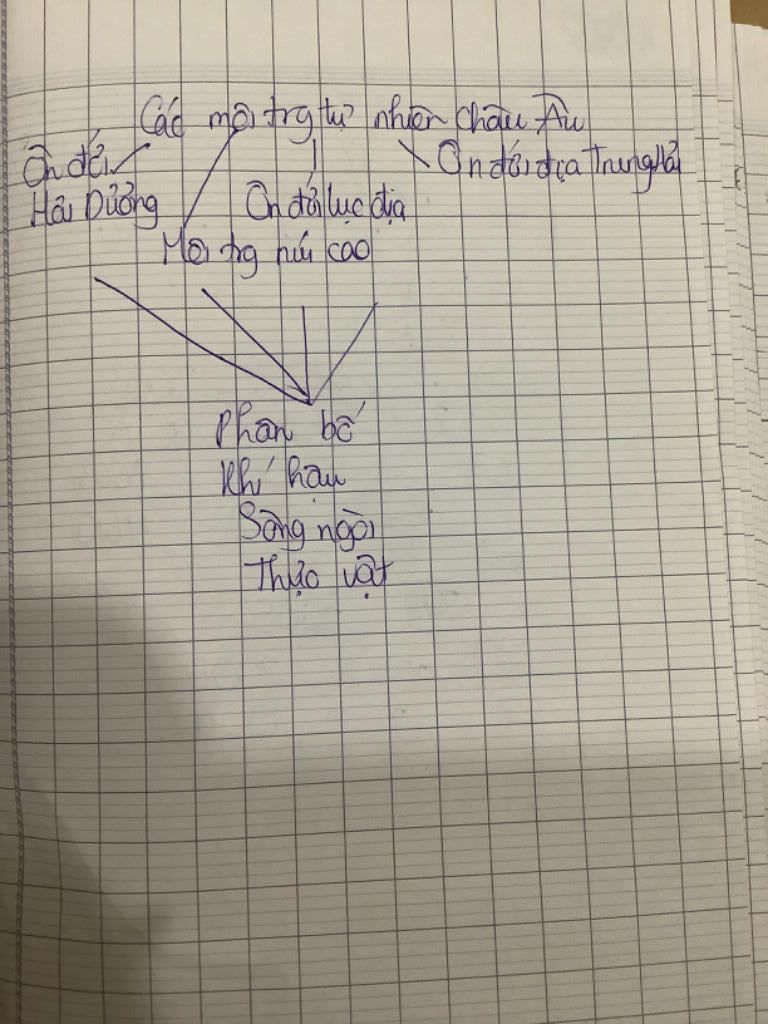 Các môi trg tự nhiên Châu Âu
Ôn đới
Hải Dương
Môi trg núi cao
Ôn đới lục địa
Ôn đới địa Trung Hải
Phân bố
Khí hậu
Sông ngòi
Thực vật